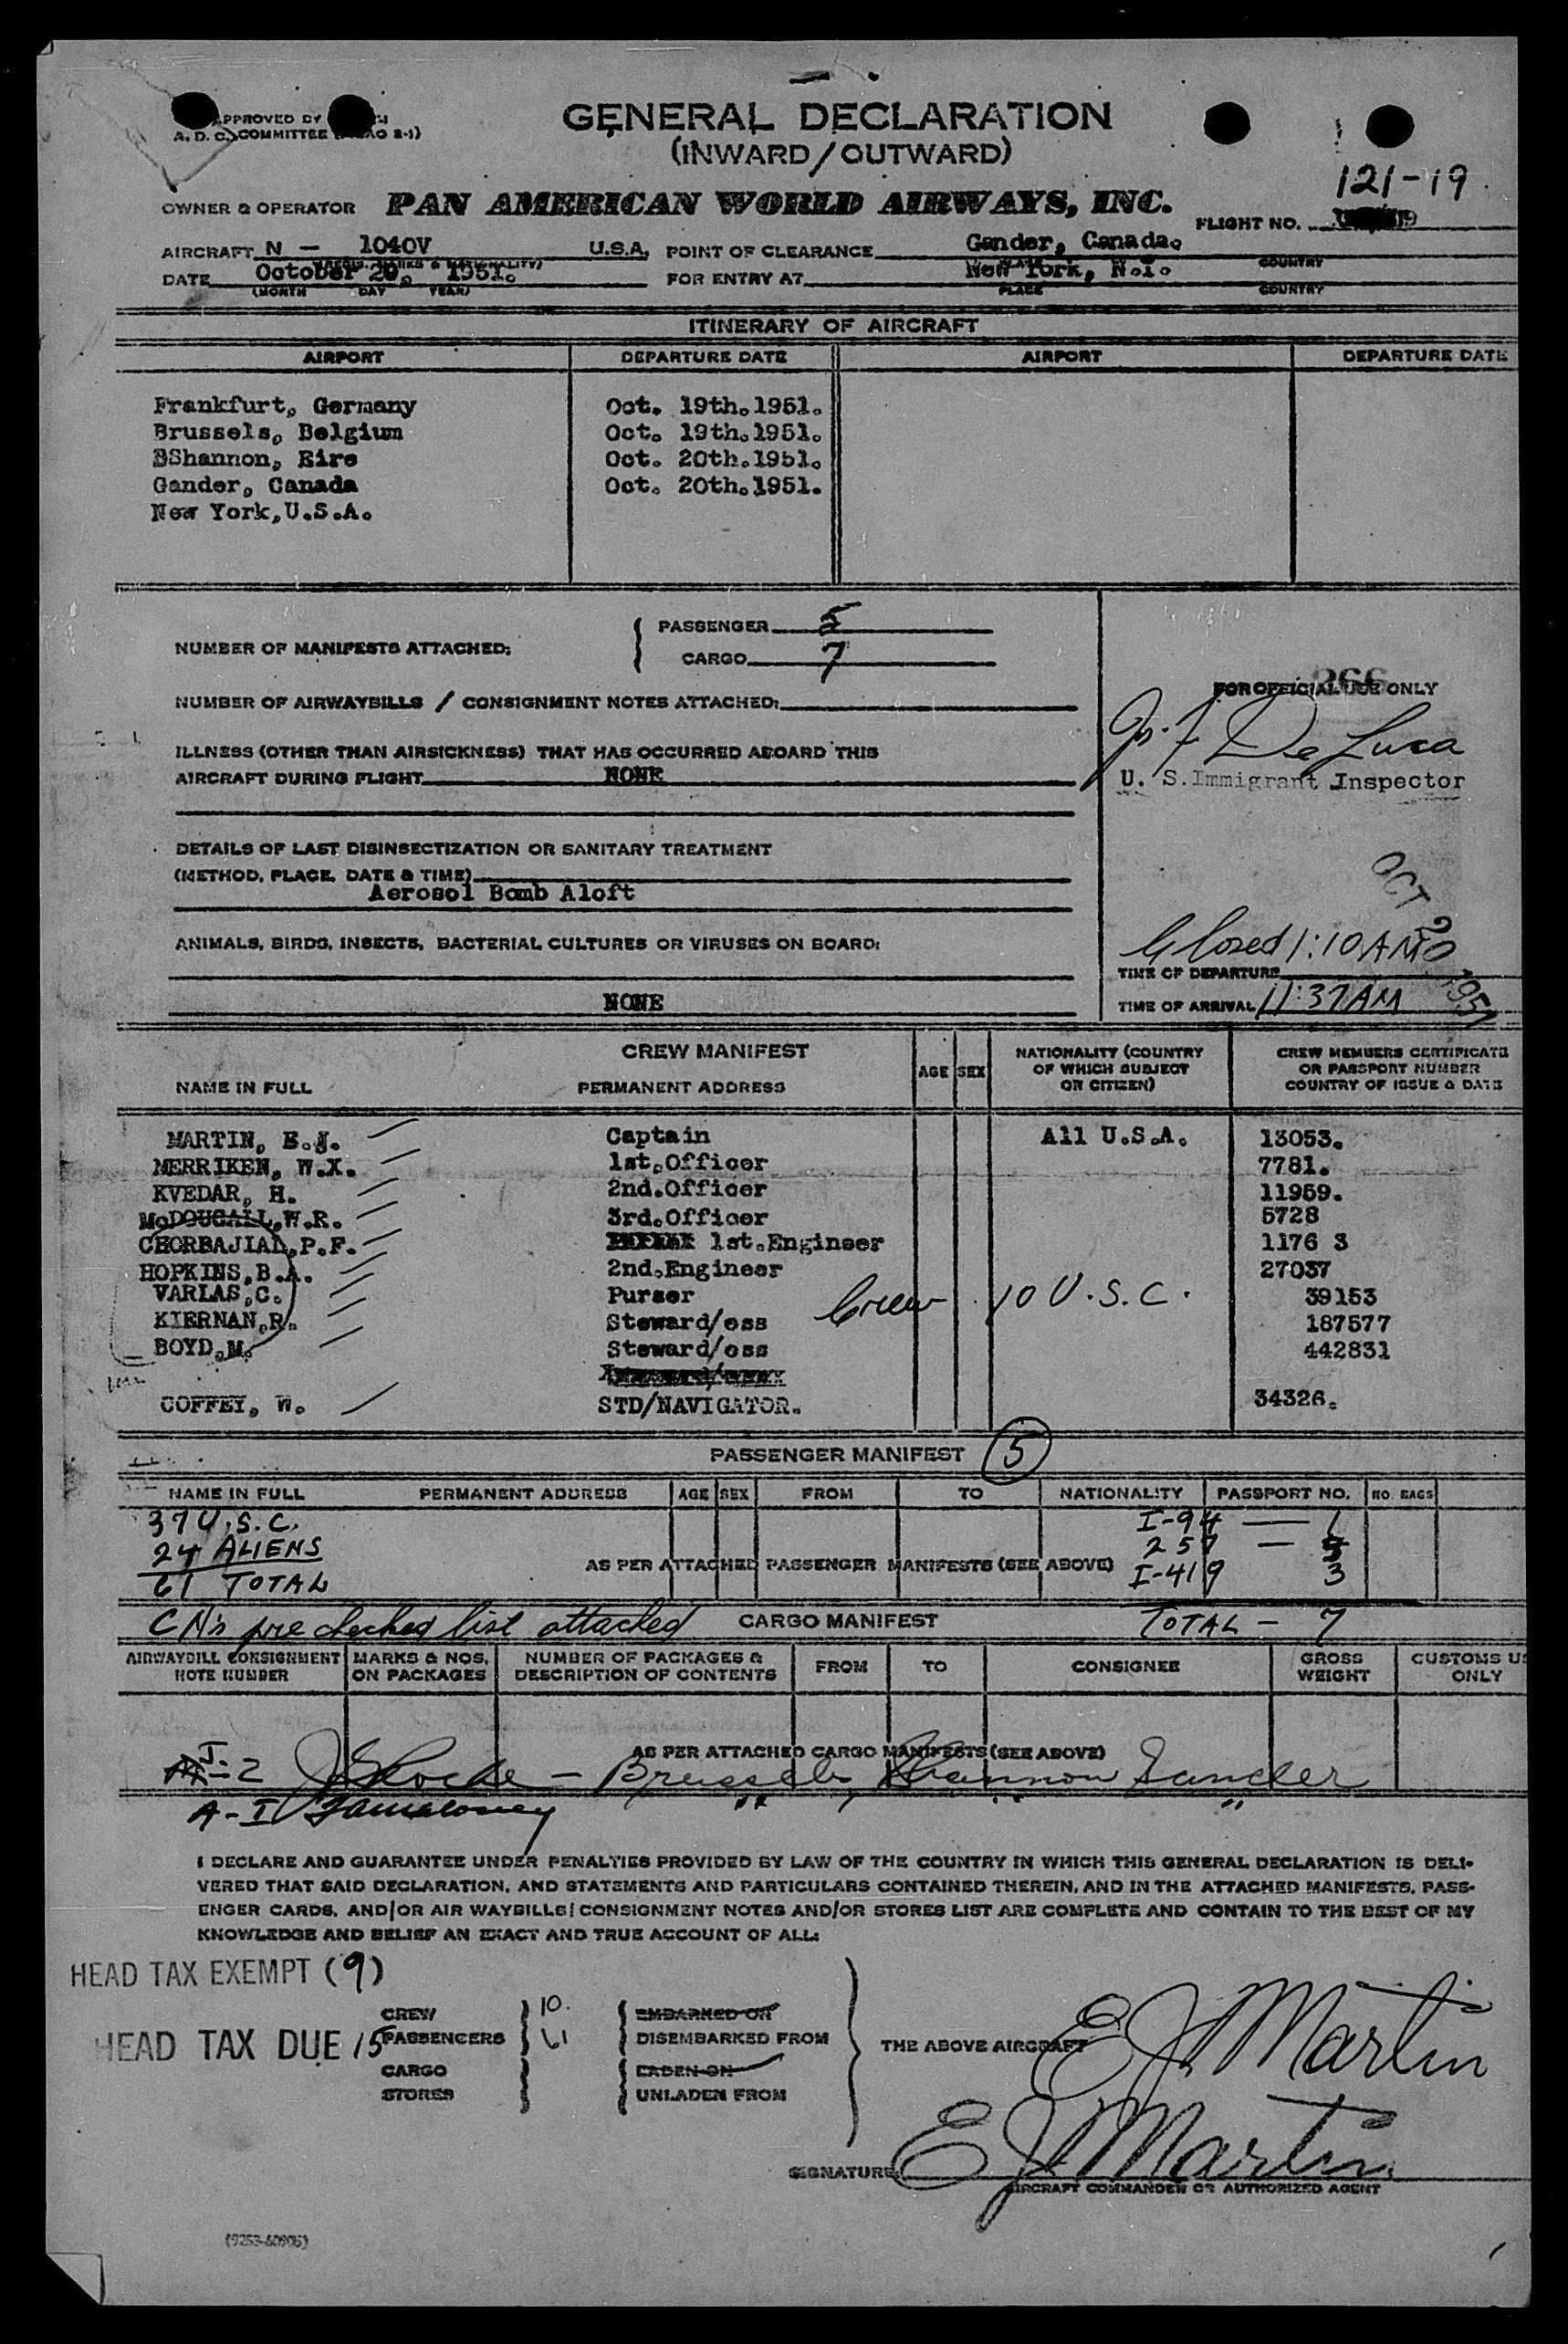 GENERAL DECLARATION
(INWARD/OUTWARD)
121-19
OWNER & OPERATOR PAN AMERICAN WORLD AIRWAYS, INC. FLIGHT NO.
AIRCRAFT N - 1040V U.S.A. POINT OF CLEARANCE Gander, Canada. COUNTRY
DATE October 20, 1951. FOR ENTRY AT New York, N.Y.
(MONTH DAY YEAR) PLACE COUNTRY
ITINERARY OF AIRCRAFT
AIRPORT DEPARTURE DATE AIRPORT DEPARTURE DATE
Frankfurt, Germany Oct. 19th.1951.
Brussels, Belgium Oct. 19th.1951.
BShannon, Eire Oct. 20th.1951.
Gander, Canada Oct. 20th.1951.
New York,U.S.A.
NUMBER OF MANIFESTS ATTACHED: PASSENGER 5
CARGO 7
NUMBER OF AIRWAYBILLS / CONSIGNMENT NOTES ATTACHED:
266
FOR OFFICIAL USE ONLY
De Luca
U. S. Immigrant Inspector
ILLNESS (OTHER THAN AIRSICKNESS) THAT HAS OCCURRED ABOARD THIS
AIRCRAFT DURING FLIGHT NONE
DETAILS OF LAST DISINSECTIZATION OR SANITARY TREATMENT
(METHOD, PLACE, DATE & TIME)
Aerosol Bomb Aloft
ANIMALS, BIRDS, INSECTS, BACTERIAL CULTURES OR VIRUSES ON BOARD:
NONE
OCT 20 1951
Closed 1:10 AM
TIME OF DEPARTURE
TIME OF ARRIVAL 11:37 AM
CREW MANIFEST
NAME IN FULL PERMANENT ADDRESS AGE SEX NATIONALITY (COUNTRY OF WHICH SUBJECT OR CITIZEN) CREW MEMBERS CERTIFICATE OR PASSPORT NUMBER COUNTRY OF ISSUE & DATE
MARTIN, E.J. Captain All U.S.A. 13053.
MERRIKEN, W.X. 1st.Officer 7781.
KVEDAR, H. 2nd.Officer 11959.
McDOUGALL,W.R. 3rd.Officer 5728
CHORBAJIAN,P.F. 1st.Engineer 1176 3
HOPKINS,B.A. 2nd.Engineer 27037
VARLAS,C. Purser Crew 10 U.S.C. 39153
KIERNAN,R. Steward/ess 187577
BOYD,M. Steward/ess 442831
COFFEY, W. STD/NAVIGATOR. 34326.
PASSENGER MANIFEST 5
NAME IN FULL PERMANENT ADDRESS AGE SEX FROM TO NATIONALITY PASSPORT NO. NO. BAGS
37 U.S.C. I-94 — 1
24 ALIENS 257 — 3
61 TOTAL AS PER ATTACHED PASSENGER MANIFESTS (SEE ABOVE) I-419 3
CN's pre checked list attached CARGO MANIFEST TOTAL - 7
AIRWAYBILL CONSIGNMENT NOTE NUMBER MARKS & NOS. ON PACKAGES NUMBER OF PACKAGES & DESCRIPTION OF CONTENTS FROM TO CONSIGNEE GROSS WEIGHT CUSTOMS USE ONLY
AS PER ATTACHED CARGO MANIFESTS (SEE ABOVE)
J-2 Brussels Shannon Gander
A-I
I DECLARE AND GUARANTEE UNDER PENALTIES PROVIDED BY LAW OF THE COUNTRY IN WHICH THIS GENERAL DECLARATION IS DELI-
VERED THAT SAID DECLARATION, AND STATEMENTS AND PARTICULARS CONTAINED THEREIN, AND IN THE ATTACHED MANIFESTS, PASS-
ENGER CARDS, AND/OR AIR WAYBILLS/CONSIGNMENT NOTES AND/OR STORES LIST ARE COMPLETE AND CONTAIN TO THE BEST OF MY
KNOWLEDGE AND BELIEF AN EXACT AND TRUE ACCOUNT OF ALL:
HEAD TAX EXEMPT (9)
CREW 10. EMBARKED ON
HEAD TAX DUE 15 PASSENGERS 61 DISEMBARKED FROM THE ABOVE AIRCRAFT E J Martin
CARGO LADEN ON
STORES UNLADEN FROM
SIGNATURE E J Martin
AIRCRAFT COMMANDER OR AUTHORIZED AGENT